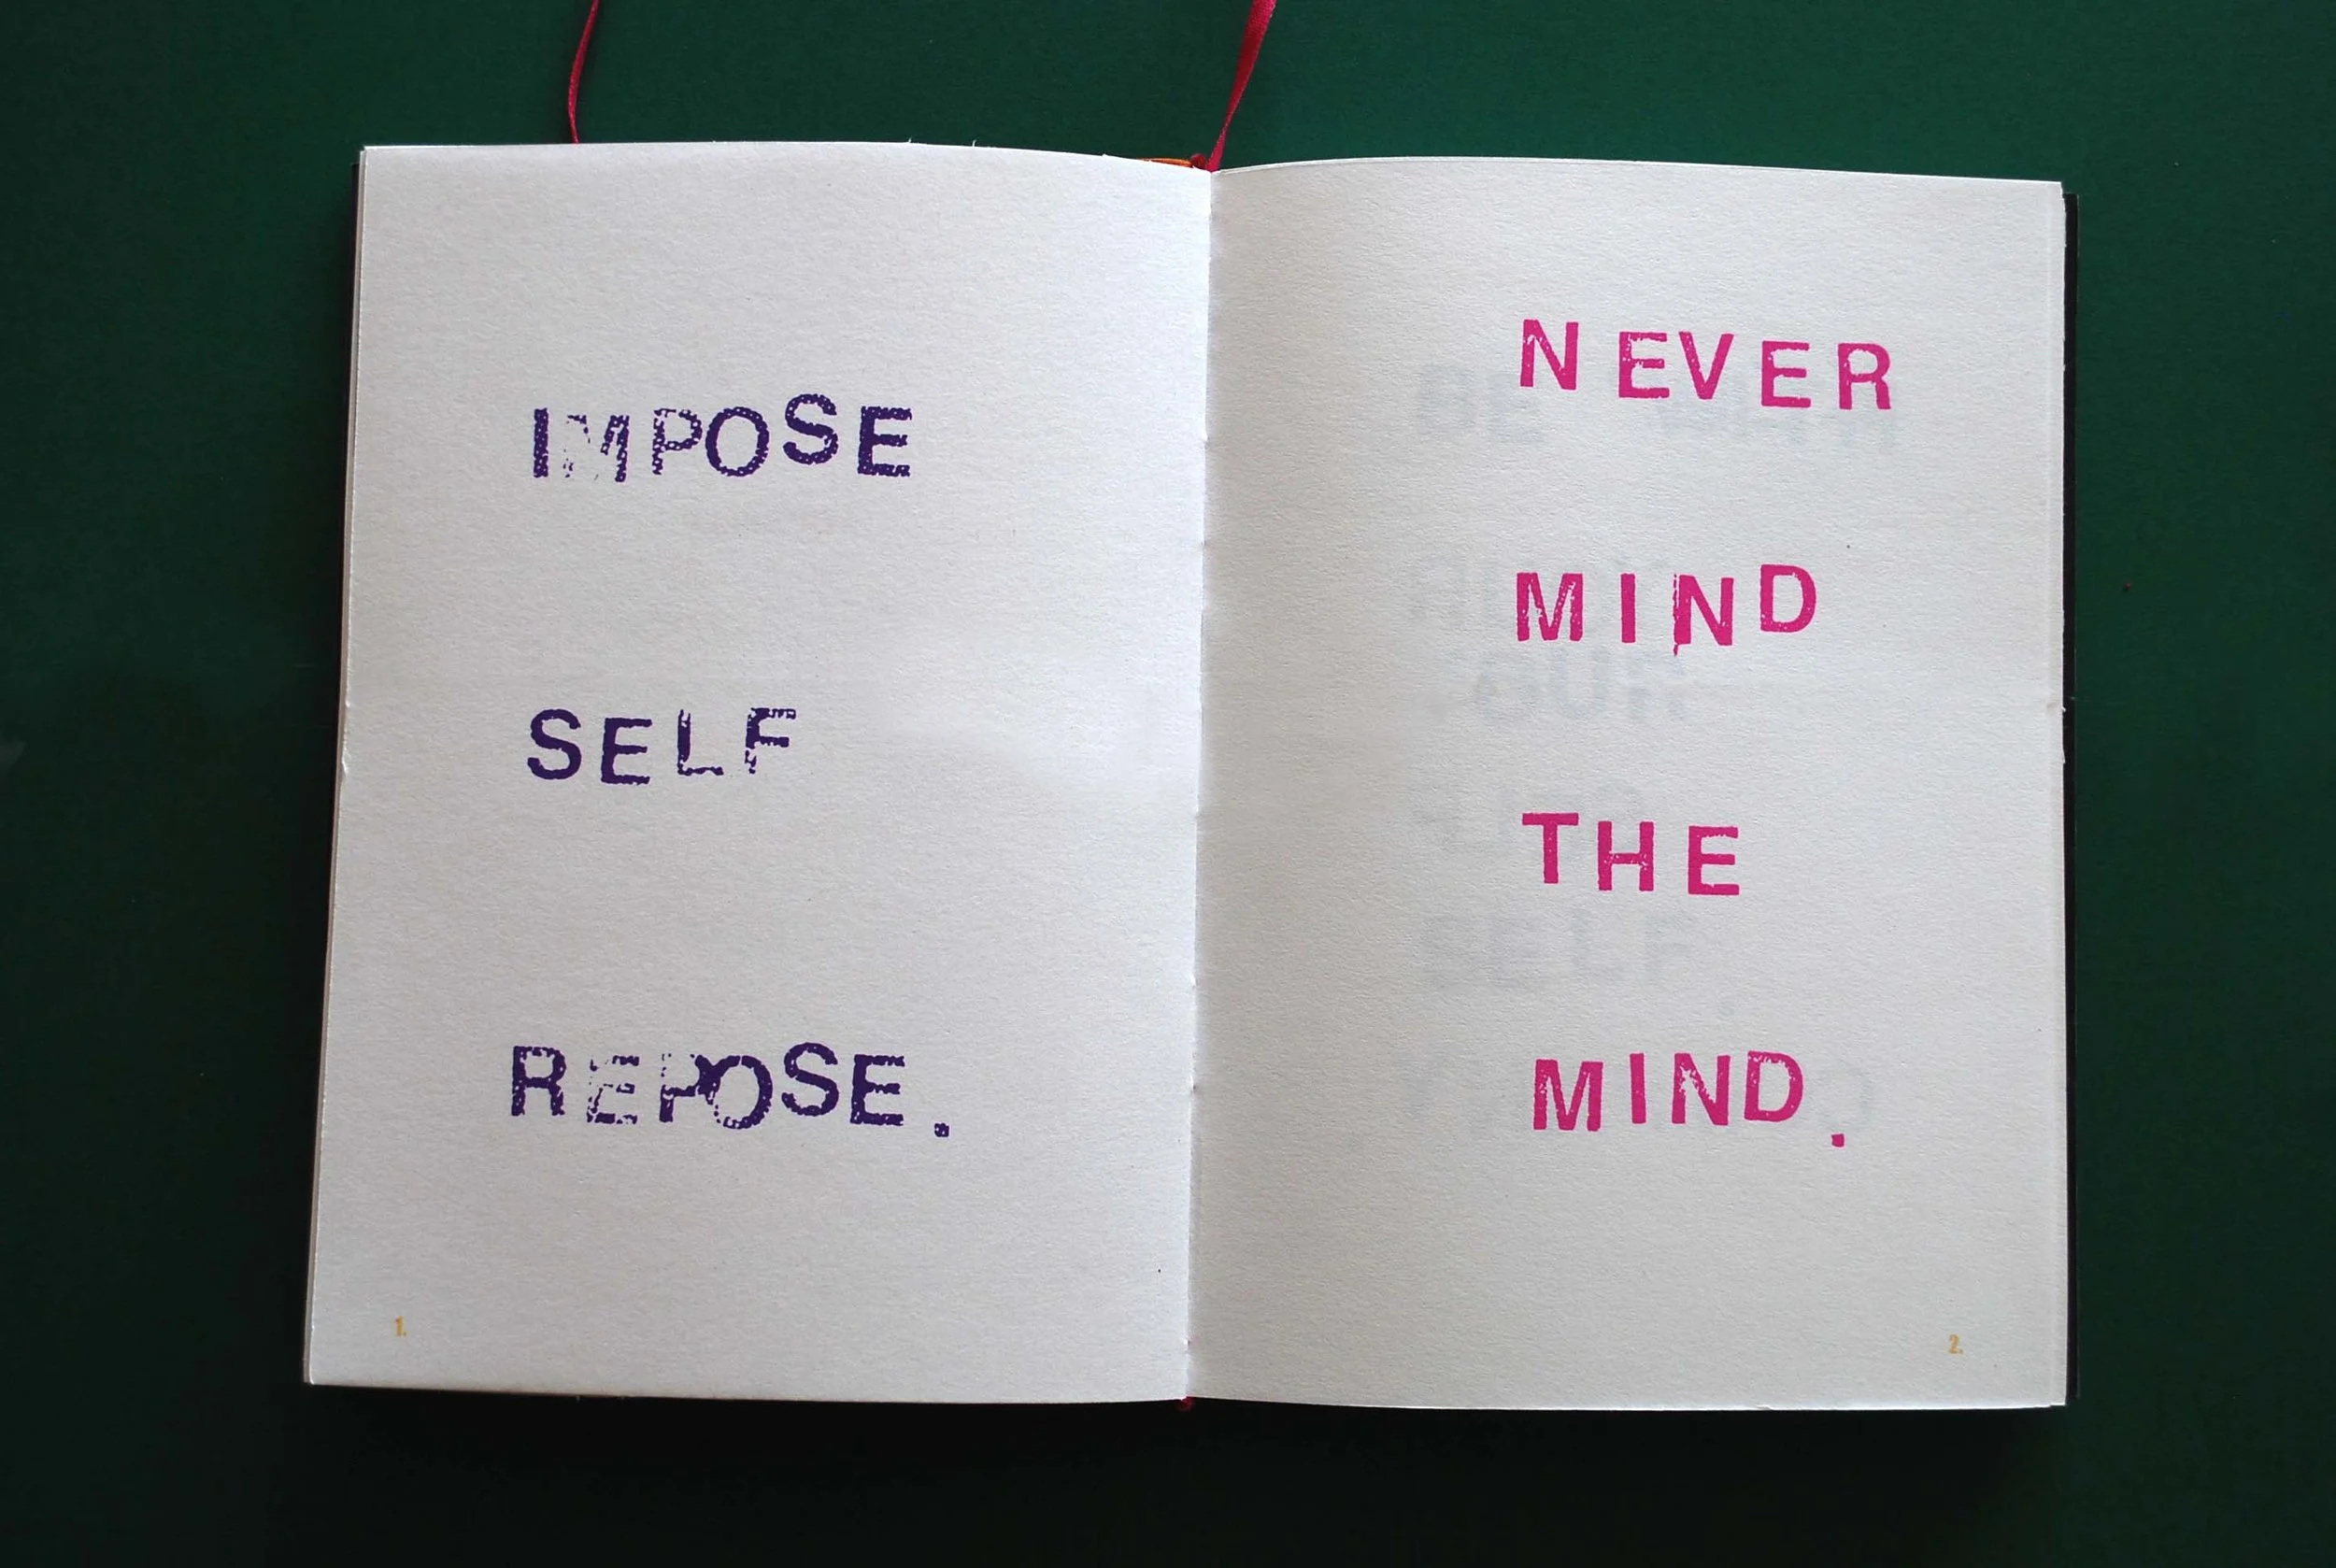 IMPOSE
SELF
REPOSE.
1.
NEVER
MIND
THE
MIND.
2.